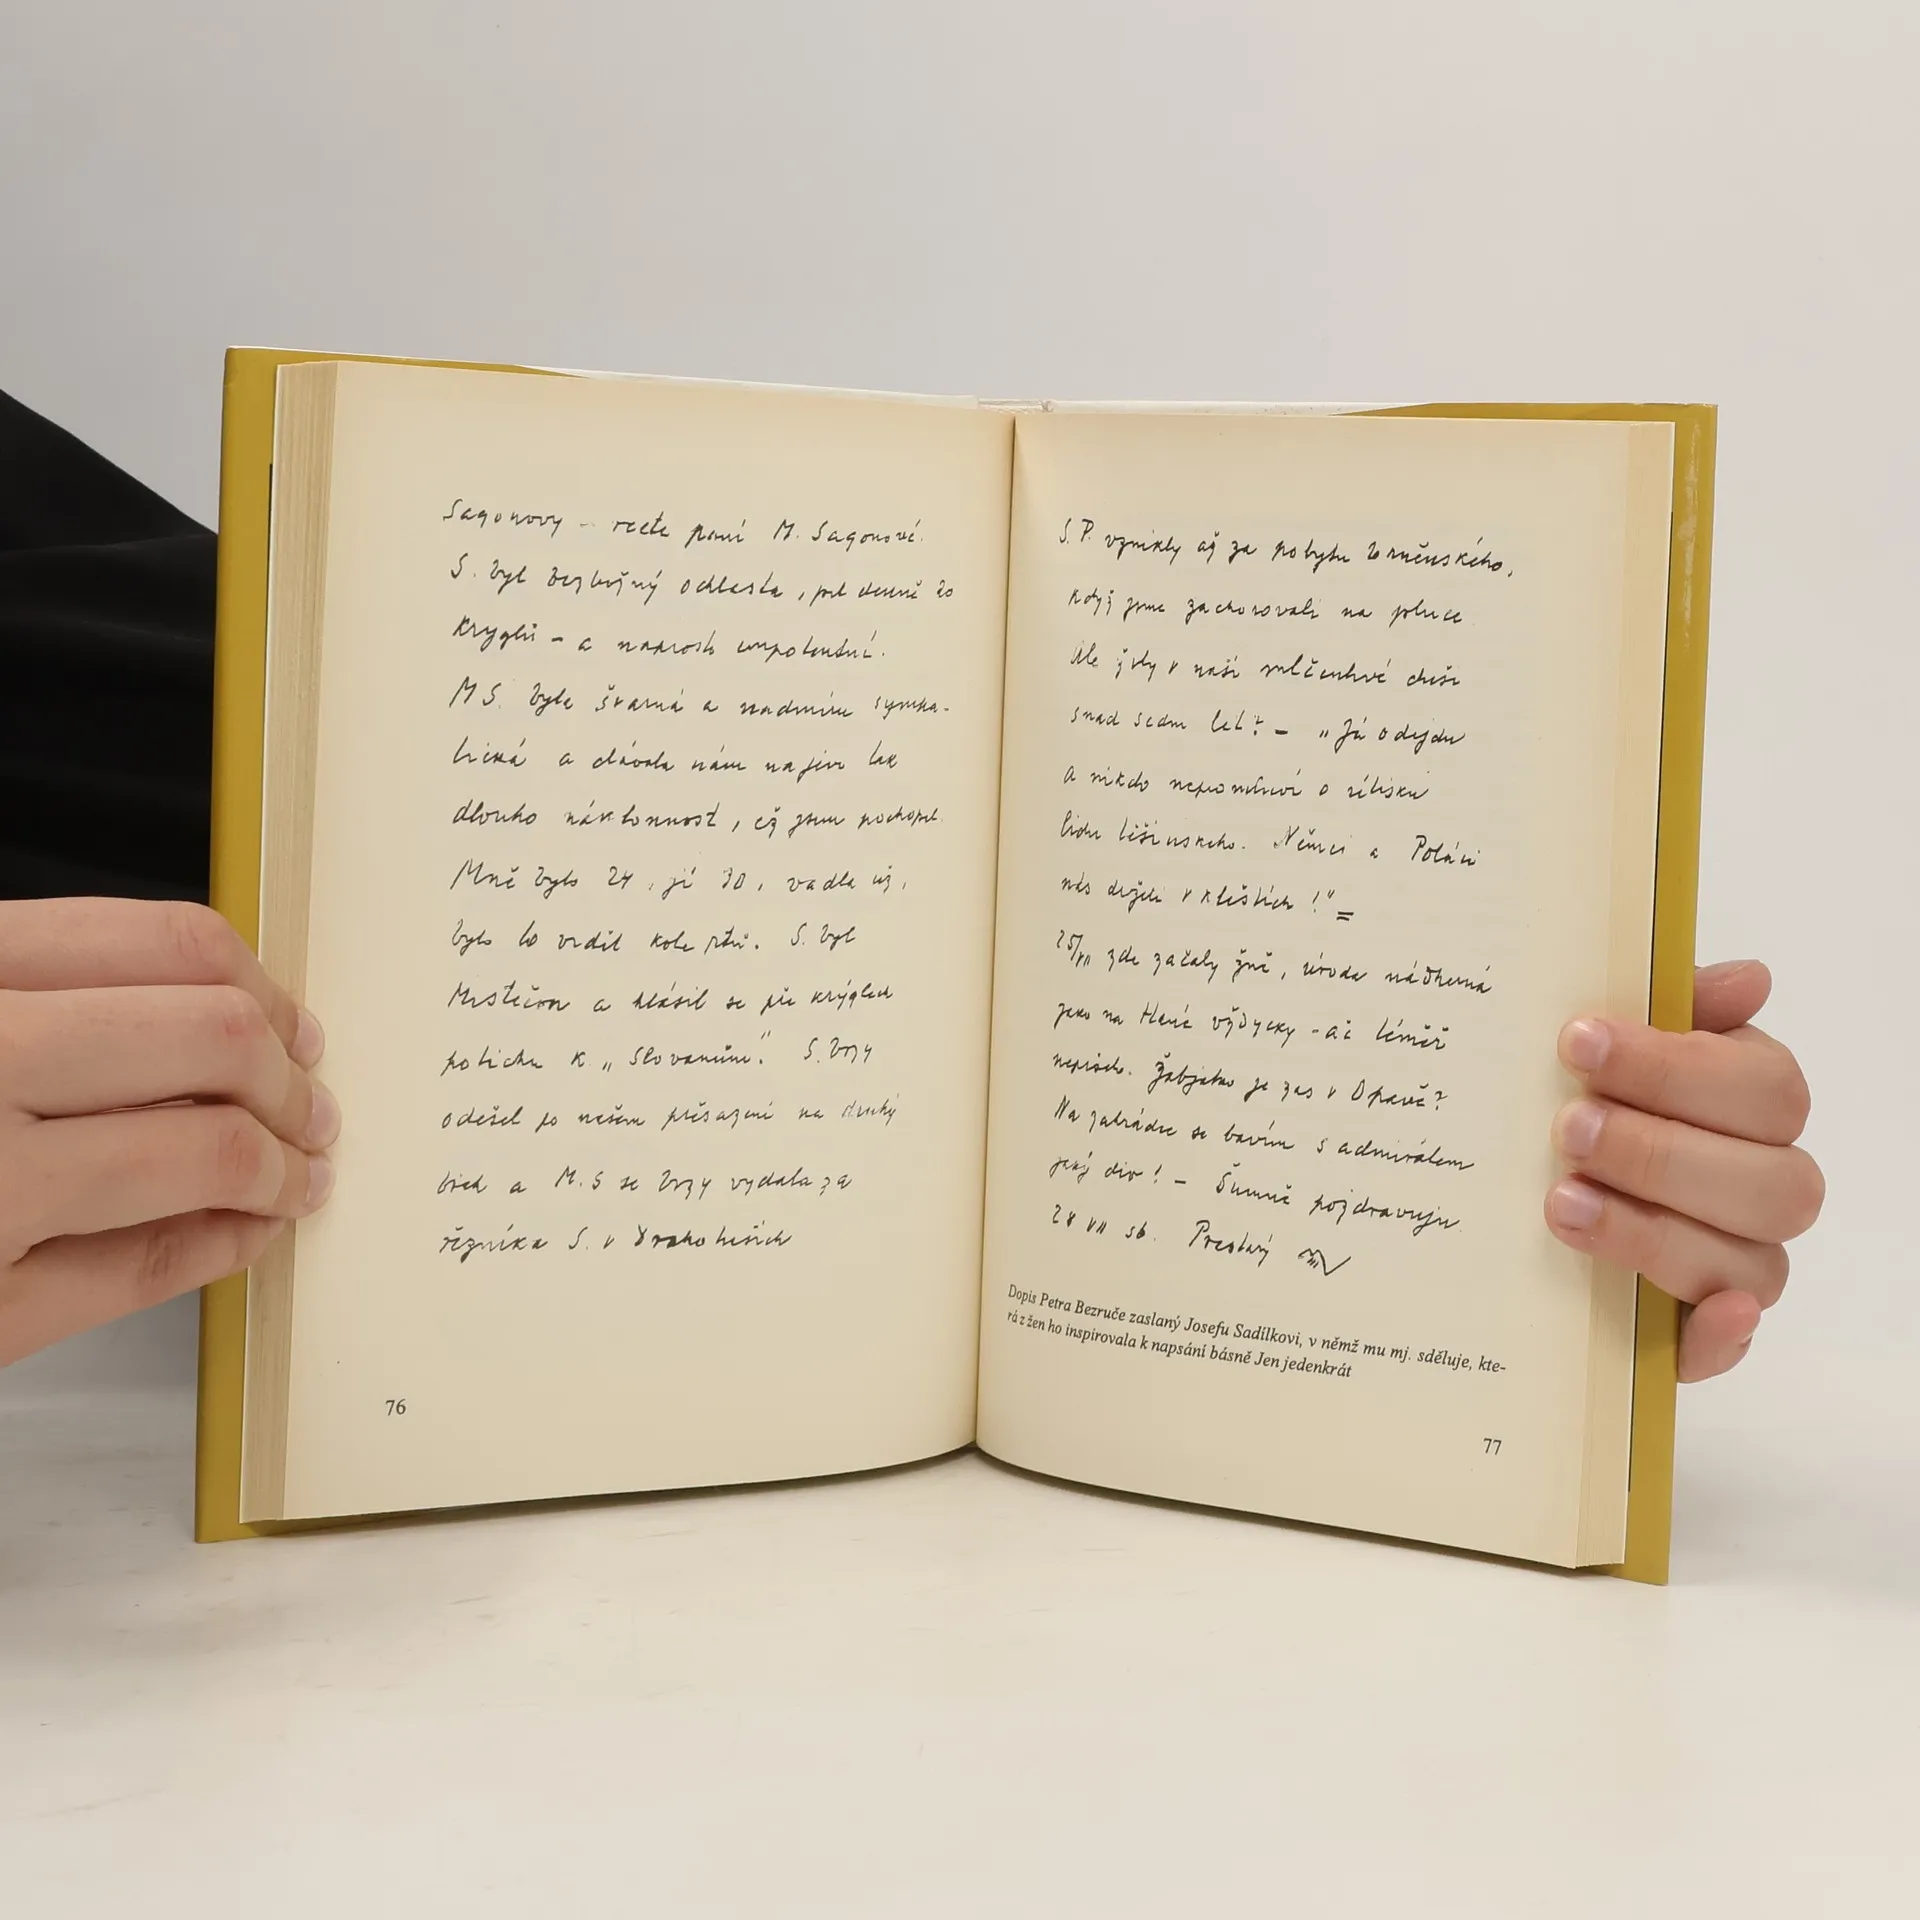 Sagonovy – recte paní M. Sagonové.
S. byl bezbožný ochlasta, pil denně 20
krýglů – a naprosto impotentní.
M S. byla švarná a nadmíru sympa-
tická a dávala nám najevo tak
dlouho náklonnost, až jsem pochopil.
Mně bylo 24, jí 30, vadla již,
bylo to vidět kole rtů. S. byl
Mistečan a hlásil se při krýglech
potichu k „Slovanům". S. brzy
odešel po našem přesazení na druhý
břeh a M. S se brzy vydala za
řezníka S. v Drahotuších
S. P. vznikly až za pobytu brněnského,
když jsme zachorovali na plíce
Ale žily v naší mlčenlivé duši
snad sedm let? – „Já odejdu
a nikdo nepromluví o útisku
lidu těšínského. Němci a Poláci
nás drželi v kleštích!" =
25/VII zde začaly žně, úroda nádherná
jako na Hané vždycky – ač téměř
neprielo. Žabjako je zas v Opavě?
Na zahrádce se bavím s admirálem
jaký div! – Šumně pozdravuju
28 VII 56. Prestarý
Dopis Petra Bezruče zaslaný Josefu Sadílkovi, v němž mu mj. sděluje, kte-
rá z žen ho inspirovala k napsání básně Jen jedenkrát
76
77